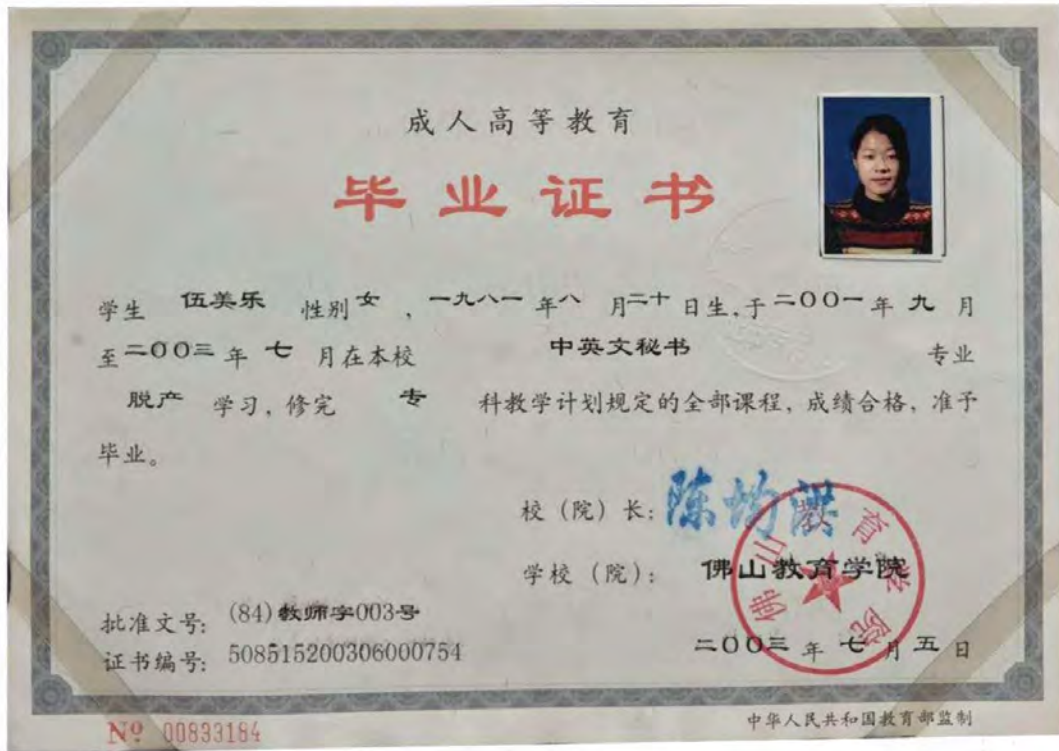 成人高等教育
毕业证书
学生 伍美乐 性别 女 , 一九八一 年 八 月 二十 日生, 于 二〇〇一 年 九 月
至 二〇〇三 年 七 月在本校 中英文秘书 专业
脱产 学习, 修完 专 科教学计划规定的全部课程, 成绩合格, 准予
毕业。
校 (院) 长:
学校 (院): 佛山教育学院
佛山教育学院
批准文号: (84)教师字003号
二〇〇三 年 七 月 五 日
证书编号: 508515200306000754
№ 00893184
中华人民共和国教育部监制